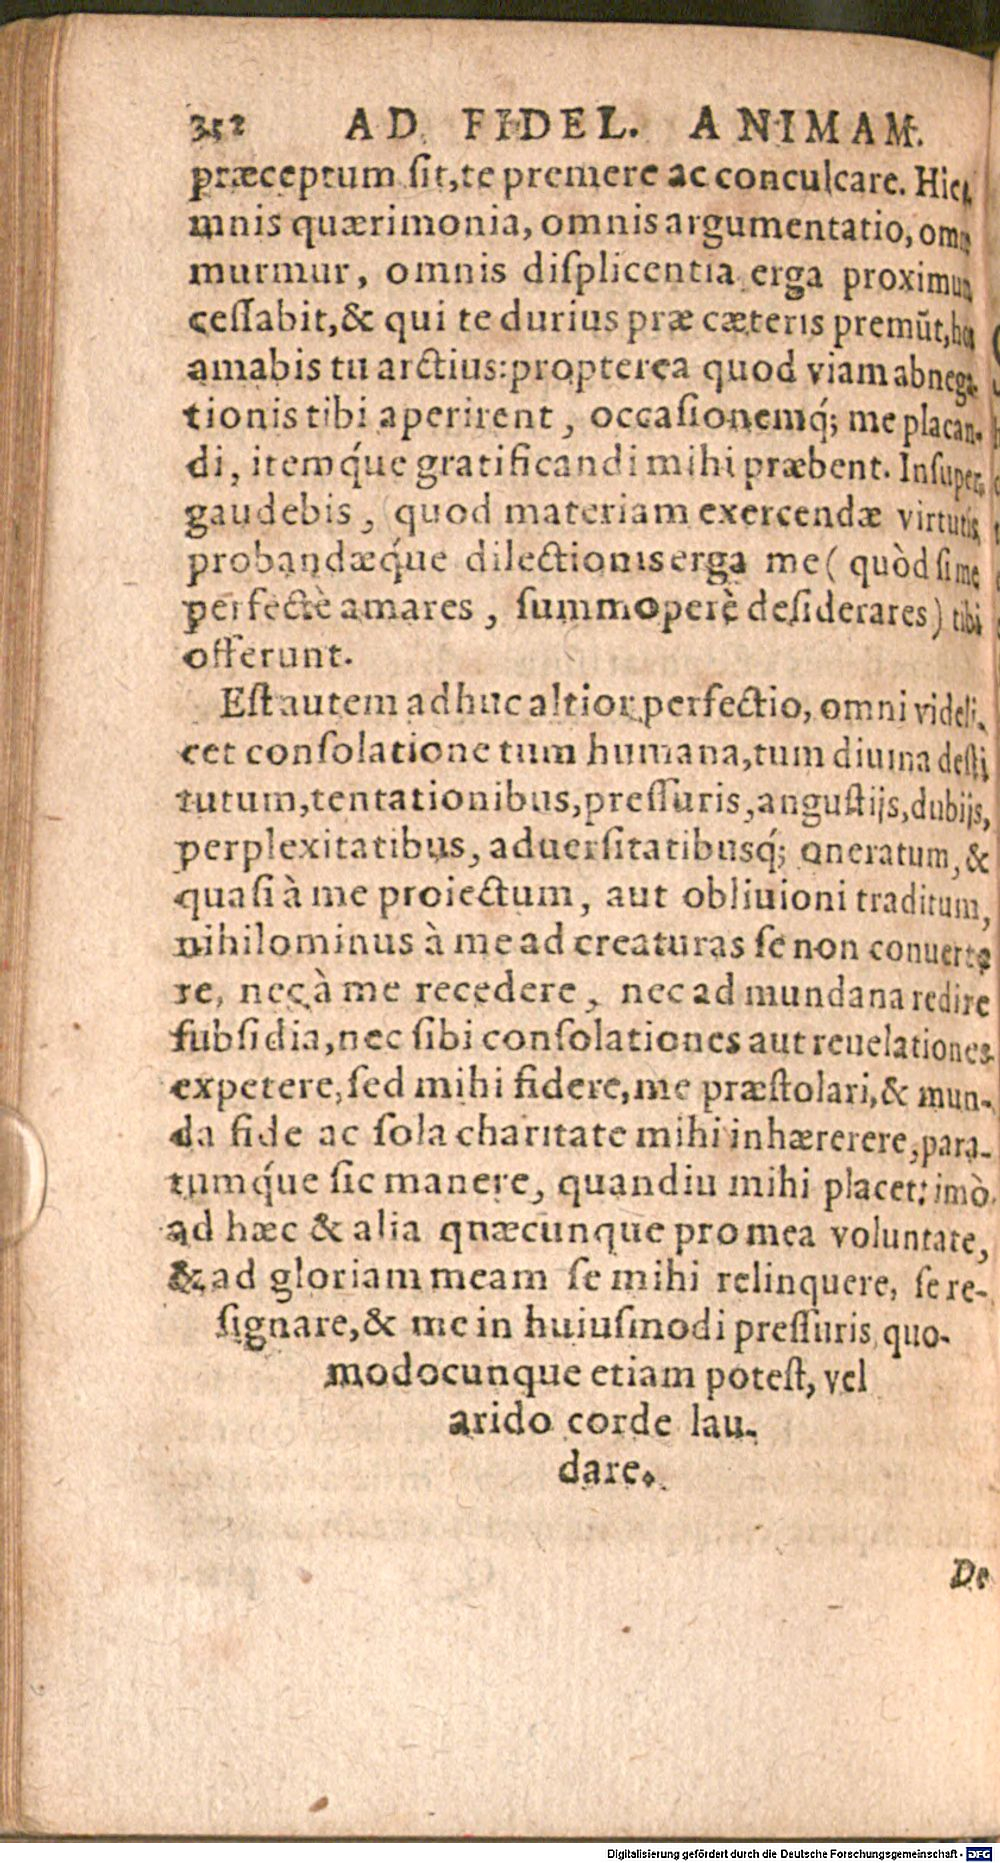 352 AD FIDEL. ANIMAM.
præceptum sit, te premere ac conculcare. Hic
mnis quærimonia, omnis argumentatio,
murmur, omnis displicentia erga proximum
cessabit, & qui te durius præ cæteris premūt,
amabis tu arctius: propterea quod viam abnega-
tionis tibi aperirent, occasionemq́; me placan-
di, itemq́ue gratificandi mihi præbent. Insuper
gaudebis, quod materiam exercendæ virtutis,
probandæq́ue dilectionis erga me (quòd si me
perfectè amares, summoperè desiderares) tibi
offerunt.
Est autem adhuc altior perfectio, omni videli-
cet consolatione tum humana, tum diuina desti
tutum, tentationibus, pressuris, angustijs, dubijs,
perplexitatibus, aduersitatibusq́; oneratum, &
quasi à me proiectum, aut obliuioni traditum,
nihilominus à me ad creaturas se non conuerte
re, nec à me recedere, nec ad mundana redire
subsidia, nec sibi consolationes aut reuelationes
expetere, sed mihi fidere, me præstolari, & mun-
da fide ac sola charitate mihi inhærerere, para-
tumq́ue sic manere, quandiu mihi placet: imò
ad hæc & alia quæcunque pro mea voluntate,
& ad gloriam meam se mihi relinquere, se re-
signare, & me in huiusmodi pressuris quo-
modocunque etiam potest, vel
arido corde lau-
dare.
De
Digitalisierung gefördert durch die Deutsche Forschungsgemeinschaft - DFG